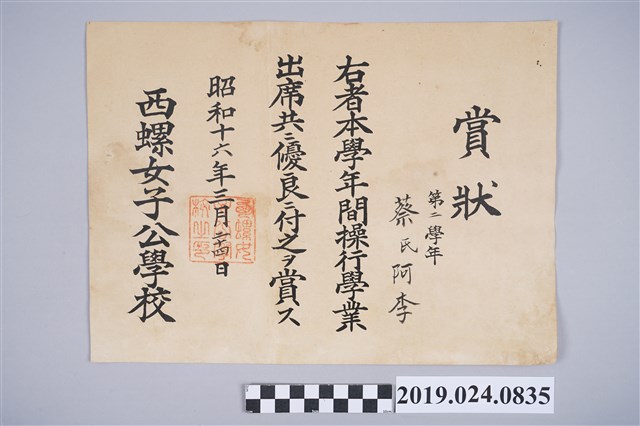 賞狀
第二學年
蔡氏阿李
右者本學年間操行學業
出席共ニ優良ニ付之ヲ賞ス
昭和十六年三月二十四日
西螺女子公學校
2019.024.0835